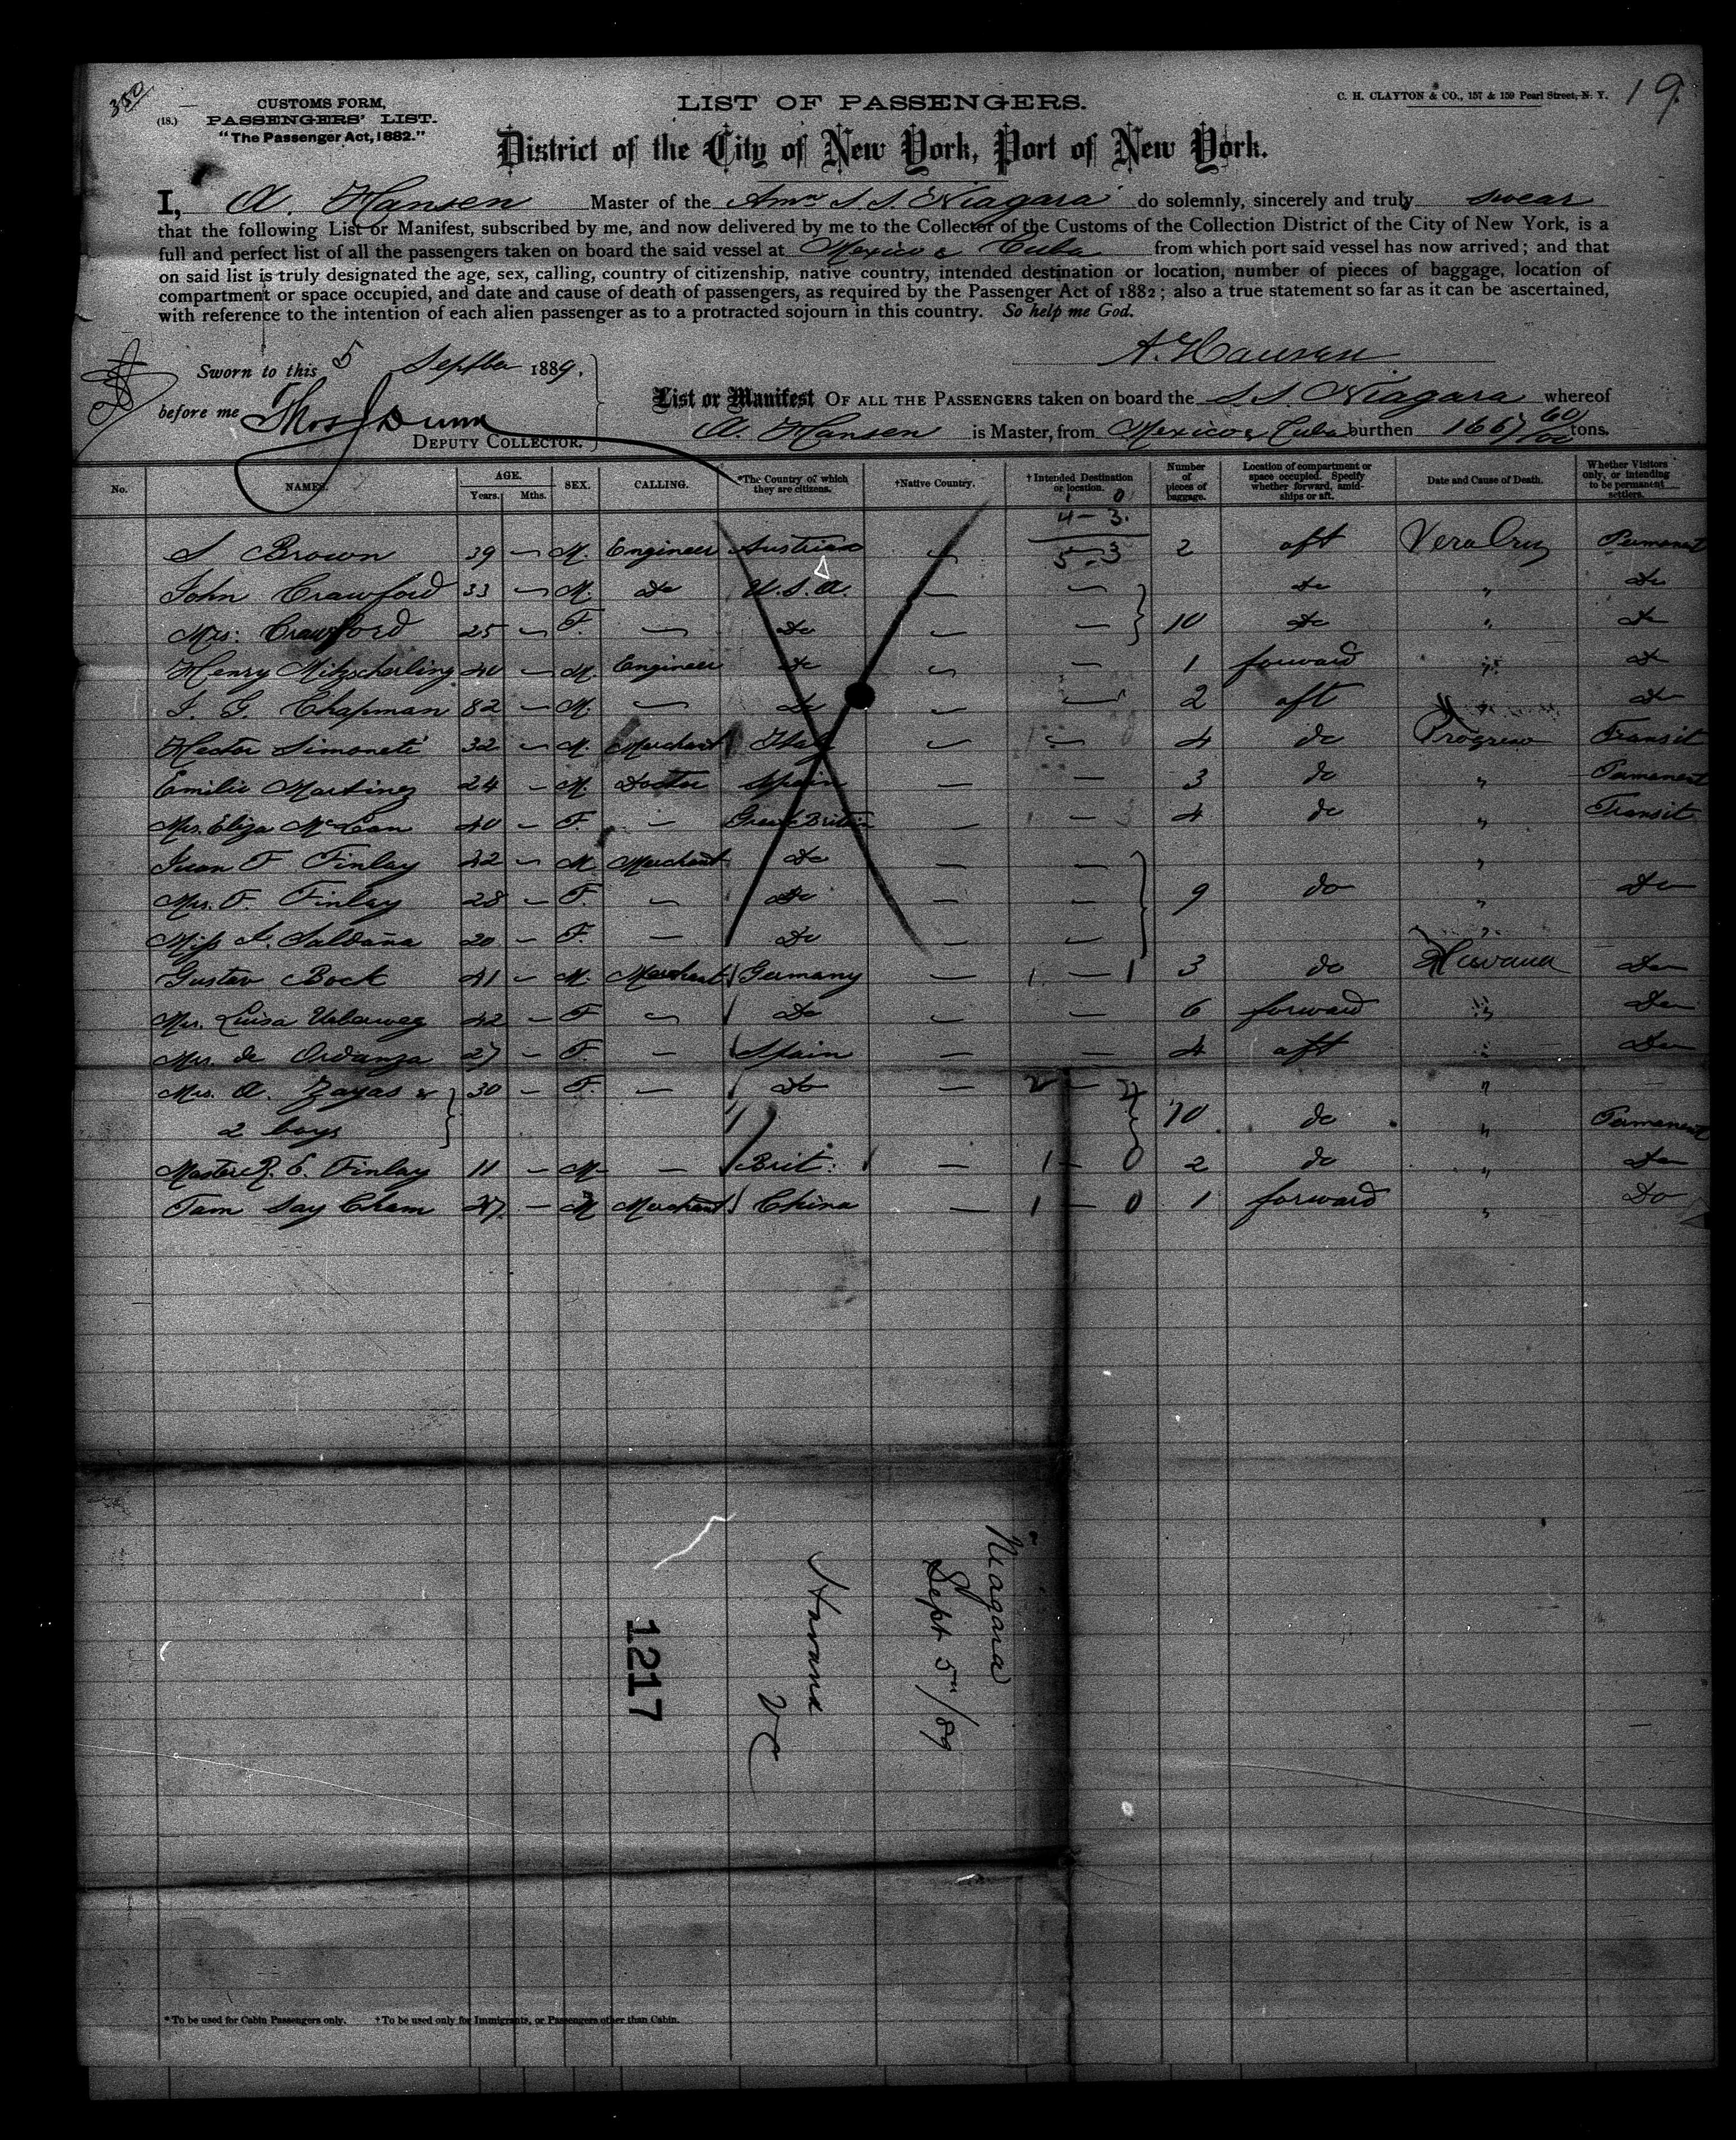 350
CUSTOMS FORM,
(18.) PASSENGERS' LIST.
"The Passenger Act, 1882."
LIST OF PASSENGERS.
C. H. CLAYTON & CO., 157 & 159 Pearl Street, N. Y.
19.
District of the City of New York, Port of New York.
I, A. Hansen Master of the Amn S.S. Niagara do solemnly, sincerely and truly swear
that the following List or Manifest, subscribed by me, and now delivered by me to the Collector of the Customs of the Collection District of the City of New York, is a
full and perfect list of all the passengers taken on board the said vessel at Mexico & Cuba from which port said vessel has now arrived; and that
on said list is truly designated the age, sex, calling, country of citizenship, native country, intended destination or location, number of pieces of baggage, location of
compartment or space occupied, and date and cause of death of passengers, as required by the Passenger Act of 1882; also a true statement so far as it can be ascertained,
with reference to the intention of each alien passenger as to a protracted sojourn in this country. So help me God.
A. Hansen
Sworn to this 5 Septber 1889.
before me Thos J Dunn
DEPUTY COLLECTOR.
List or Manifest OF ALL THE PASSENGERS taken on board the S.S. Niagara whereof
A. Hansen is Master, from Mexico & Cuba burthen 1667 60/100 tons.
No. NAMES. AGE. Years. Mths. SEX. CALLING. *The Country of which they are citizens. †Native Country. †Intended Destination or location. Number of pieces of baggage. Location of compartment or space occupied. Specify whether forward, amidships or aft. Date and Cause of Death. Whether Visitors only, or intending to be permanent settlers.
1 0
4 - 3.
S Brown 39 — M. Engineer Austrian — 5 - 3 2 aft Vera Cruz Permanent
John Crawford 33 — M. Do U.S.A. — — do " Do
Mrs: Crawford 25 — F. — Do — — 10 do " Do
Henry Mitzscherling 40 — M. Engineer Do — — 1 forward " Do
I. G. Chapman 82 — M. — Do — — 2 aft " Do
Hector Simoneti 32 — M. Merchant Italy — — 4 do Progreso Transit
Emilio Martinez 24 — M. Doctor Spain — — 3 do " Permanent
Mrs. Eliza McLean 40 — F. — Great Britain — — 4 do " Transit
Juan F Finlay 42 — M Merchant Do — — "
Mrs. F. Finlay 28 — F. — Do — — 9 do " Do
Miss I. Saldaña 20 — F. — Do — — "
Gustav Bock 41 — M. Merchant Germany — 1 — 1 3 do Havana Do
Mrs. Luisa Ueberweg 42 — F — Do — — 6 forward " Do
Mrs. de Ordanza 27 — F. — Spain — — 4 aft " Do
Mrs. A. Zayas & 30 — F. — Do — 2 — "
2 boys 10 do " Permanent
Master R. E. Finlay 11 — M — Brit: — 1 — 0 2 do " Do
Tam Say Cham 47 — M Merchant China — 1 — 0 1 forward " Do
Niagara
Sept 5th/89
Havana
1217
* To be used for Cabin Passengers only. † To be used only for Immigrants, or Passengers other than Cabin.